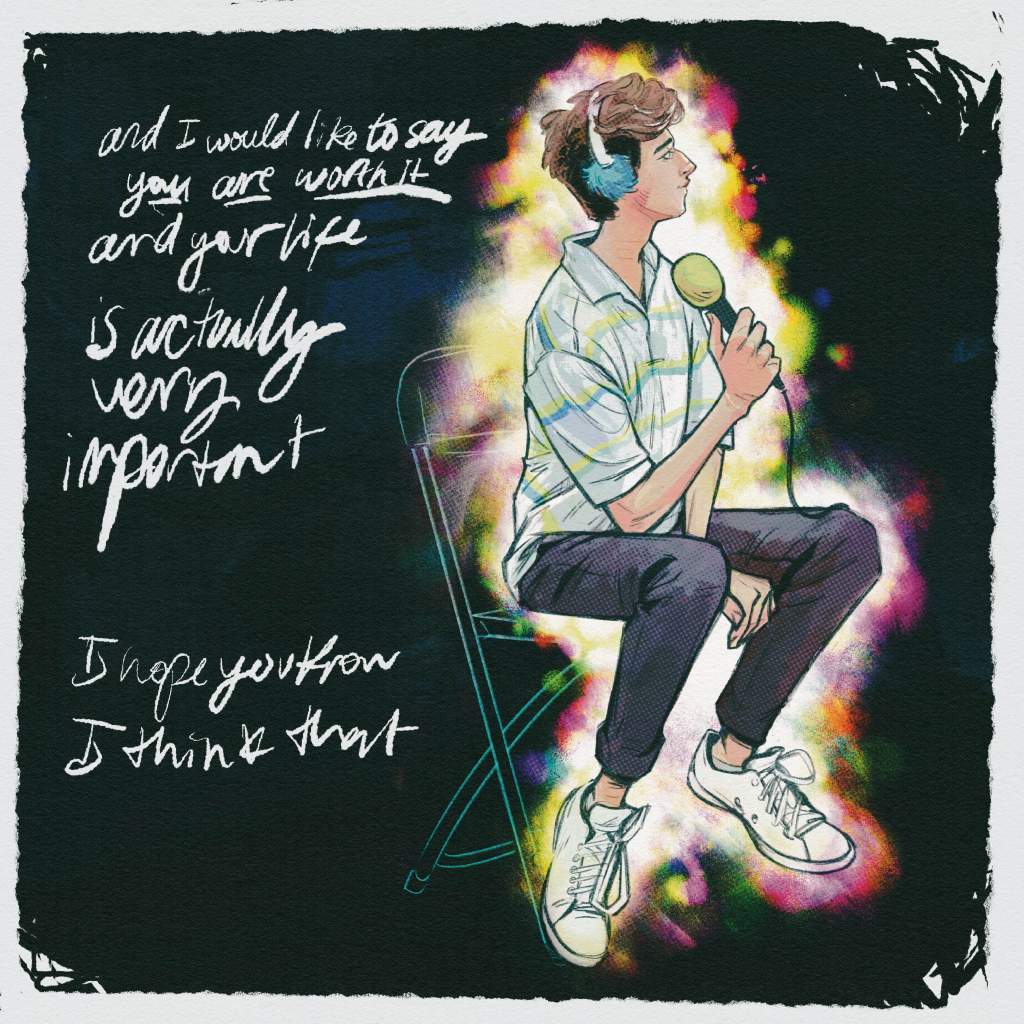 and I would like to say
you are worth it
and your life
is actually
very
important
I hope you know
I think that